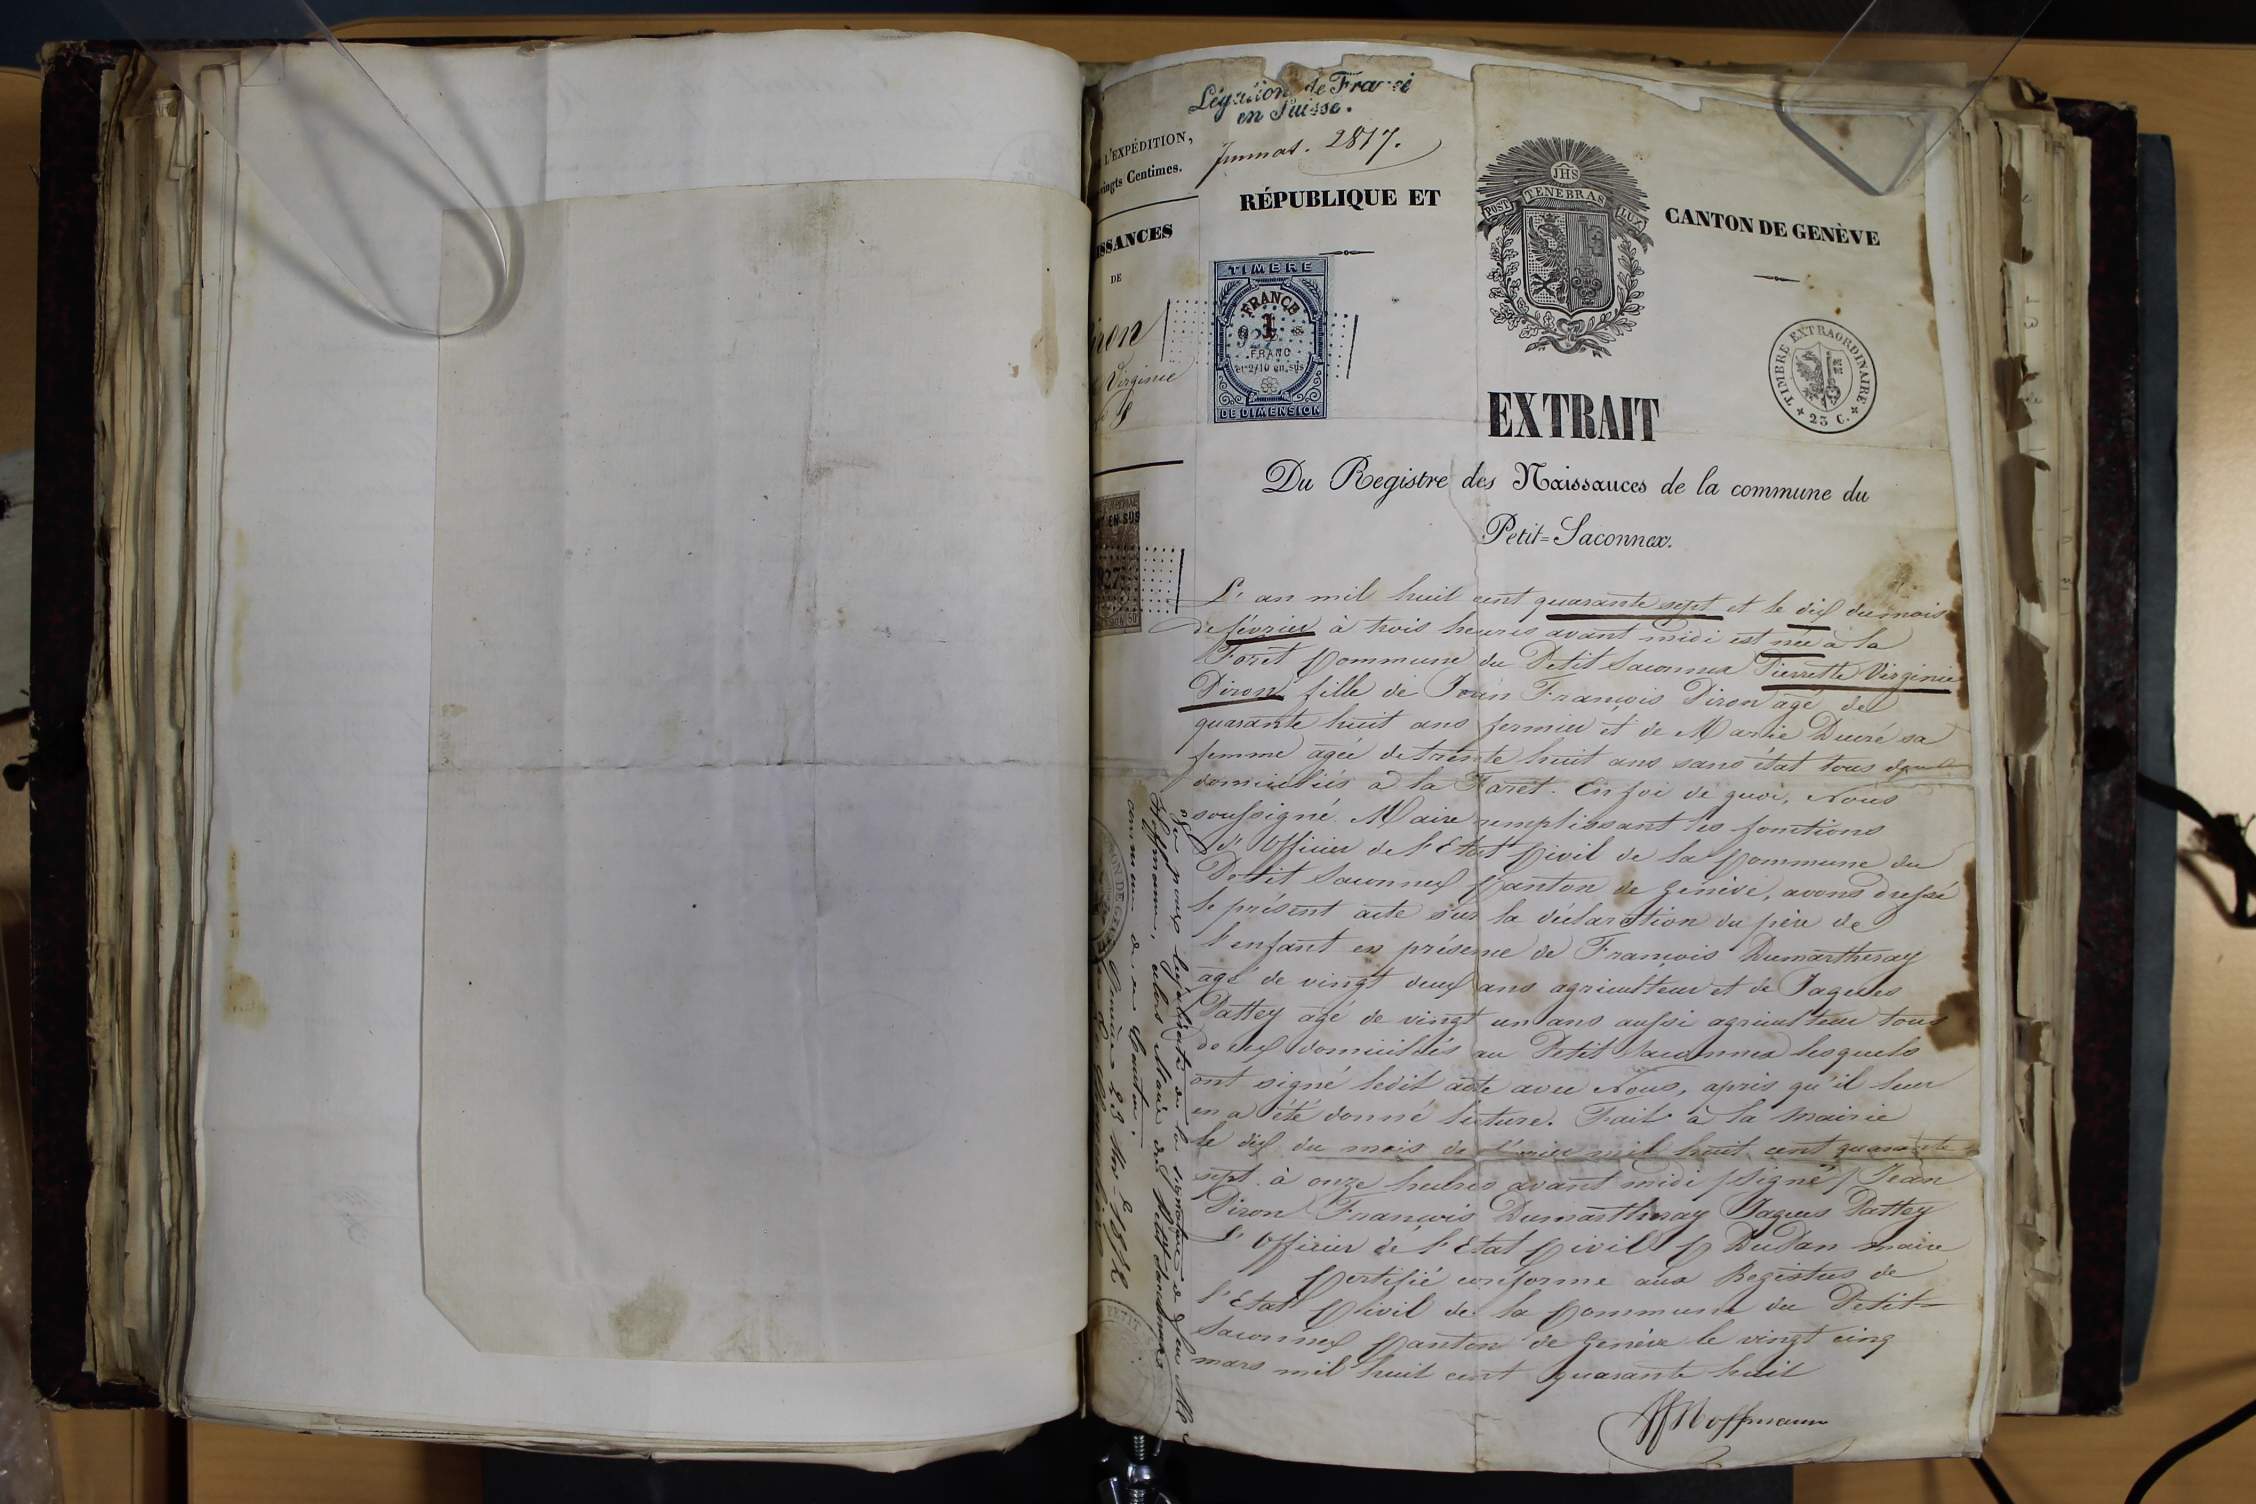 Légation de France
en Suisse.
Immat. 2817.
L'EXPÉDITION,
vingts Centimes.
ISSANCES
DE
iron
Virginie
RÉPUBLIQUE ET
CANTON DE GENÈVE
JHS
POST TENEBRAS LUX
TIMBRE
FRANCE
1
FRANC
et 2/10 en sus
DE DIMENSION
TIMBRE EXTRAORDINAIRE
23 C.
EN SUS
EXTRAIT
Du Registre des Naissances de la commune du
Petit=Saconnex.
L'an mil huit cent quarante sept et le dix du mois
de février à trois heures avant midi est née à la
Forêt Commune du Petit Saconnex Pierrette Virginie
Piron fille de Jean François Piron âgé de
quarante huit ans fermier et de Marie Ducré sa
femme agée de trente huit ans sans état tous deux
domiciliés à la Forêt. En foi de quoi, Nous
soussigné Maire remplissant les fonctions
d'Officier de l'Etat Civil de la Commune du
Petit Saconnex Canton de Genève, avons dressé
le présent acte sur la déclaration du père de
l'enfant en présence de François Dumartheray
âgé de vingt deux ans agriculteur et de Jaques
Pattey agé de vingt un ans aussi agriculteur tous
deux domiciliés au Petit Saconnex lesquels
ont signé ledit acte avec Nous, après qu'il leur
en a été donné lecture. Fait à la Mairie
le dix du mois de février mil huit cent quarante
sept à onze heures avant midi (signé) Jean
Piron François Dumartheray Jaques Pattey
L'Officier de l'Etat Civil DuPan maire
Certifié conforme aux Registres de
l'Etat Civil de la Commune du Petit-
Saconnex Canton de Genève le vingt cinq
mars mil huit cent quarante huit
Hoffmann
légalisation de la signature de feu Mr
Hoffmann, alors Maire du Petit Saconnex
commune de ce Canton.
Genève 23